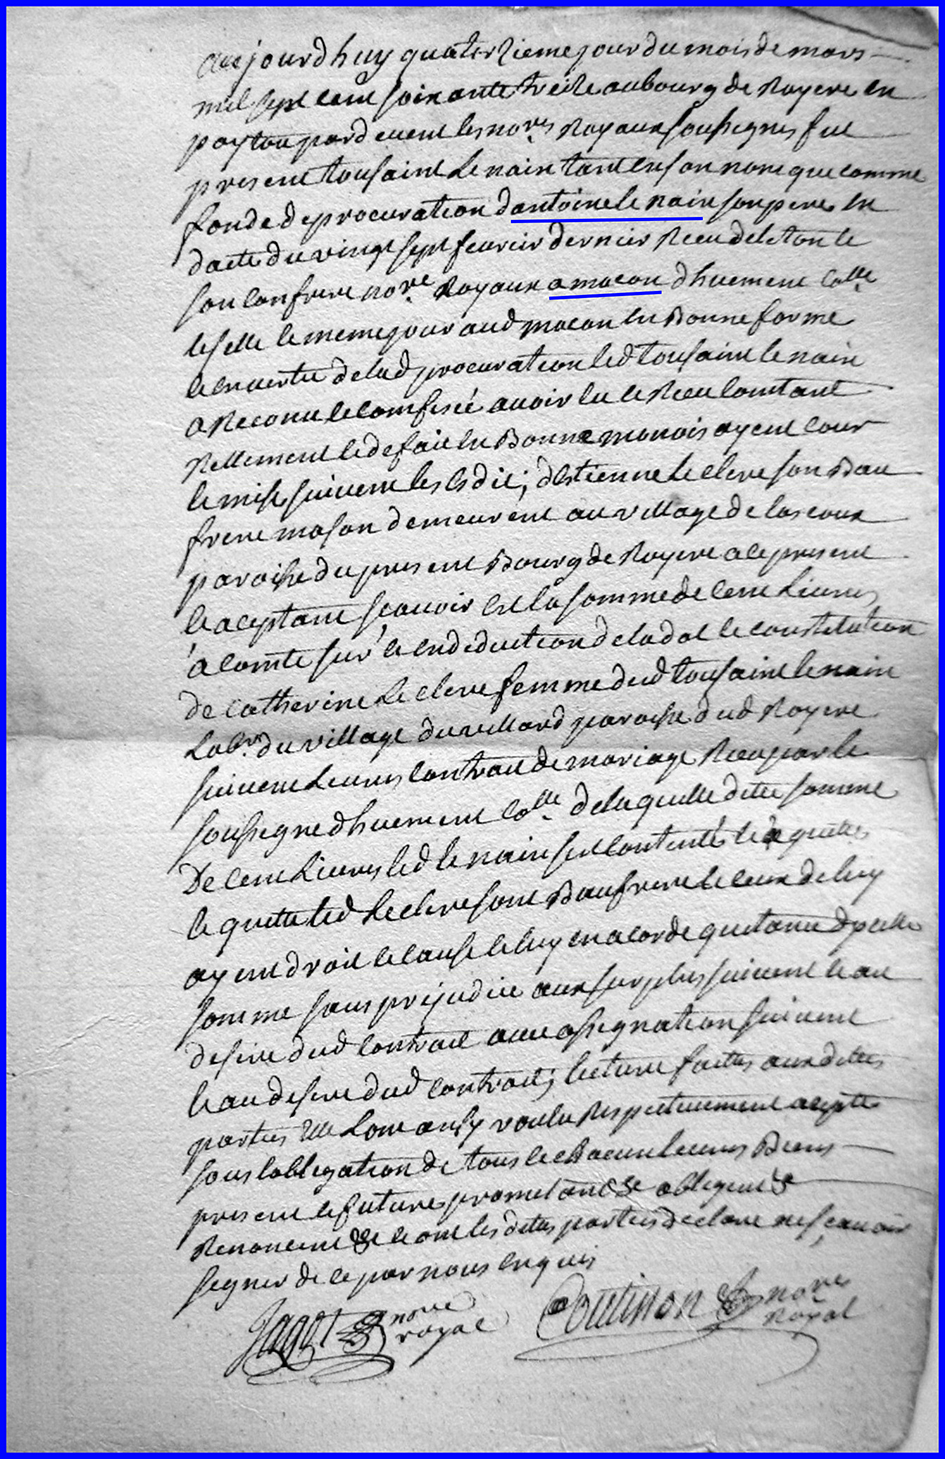 aujourdhuy quatorzieme jour du mois de mars
mil sept cent soixante treize au bourg de Royere en
poytou pardevent les no.res Royaux soussignes fut
present tousaint le nain tant en son nom que comme
fondé de procuration dantoine le nain son pere en
datte du vingt sept fevrier dernier Receu del et on le
son confrere no.re Royaux a macon dhuement Colle
leselle le meme jour aud macon en Bonne forme
le en vertu de lad procuration led tousaint le nain
a Reconu le comfesé avoir eu le Receu comtant
Rellement le de fait en Bonne monois ayent cour
le mise suivent les Edit; destienne Le clere son Bau
frere mason demeurent au village de lascoux
paroisse du present Bourg de Royere a ce present
le aceptant scavoir est la somme de cent Livres
a comte sur le en deduction de la dot le constitution
de catherine Le clere femme dud tousaint le nain
Labr. du village du villard paroisse dud Royere
suivent Leurs contrat de mariage Receu par le
soussigne dhuement Colle de laquelle ditte somme
De cent Livres led le nain sest contenté le quitte
le quitte led Leclere sont Baufrere le ceux de luy
ayent droit le cause le luy en acorde quitance dpelle
somme sans prejudice aux surplus suivent le au
desire dud contrait avec assegnation suivent
le au desire dud contrait; lecture faittes aux dittes
parties Elle Lont ausy voulu Respectivement acepte
sous loblegation de tous le chacun leurs Biens
present le future prometant &c oblegent &c
Renoncent &c le ont les dittes parties declare ne scavoir
segner de ce par nous enquis
Jagot no.re royal
Coutinon no.re Royal